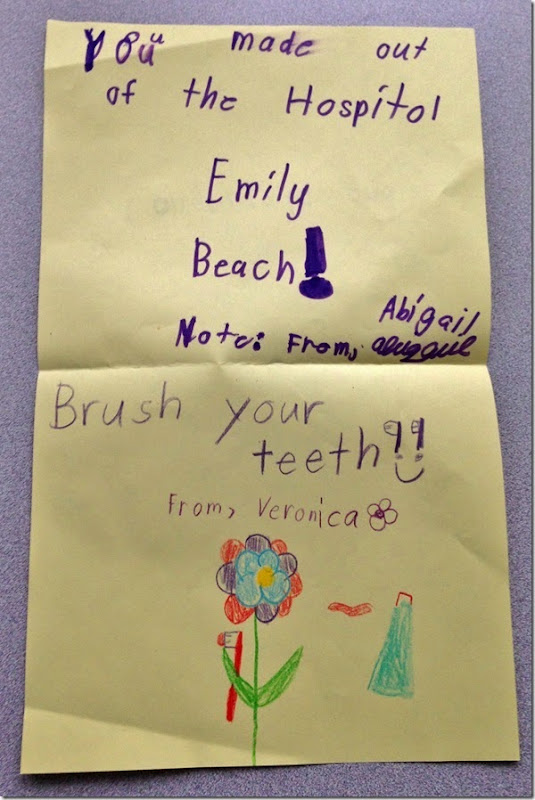 You made out
of the Hospitol
Emily
Beach!
Note: From, Abigail
Brush your
teeth!!
From, Veronica